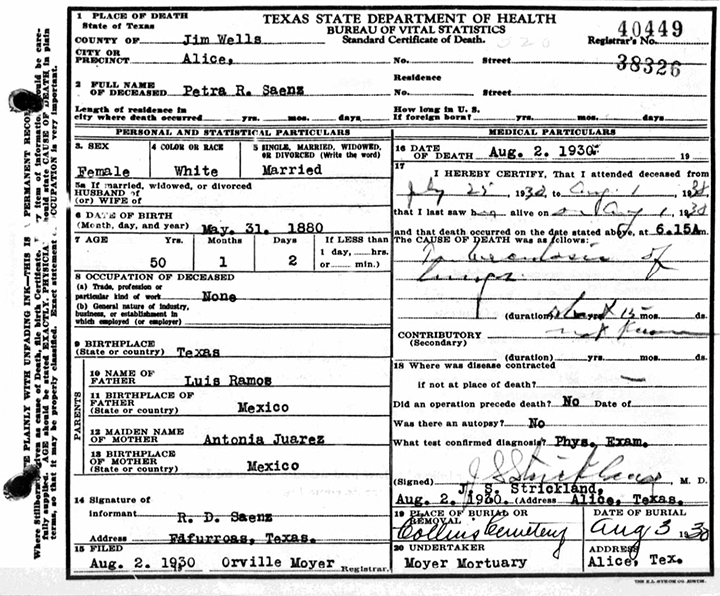 TEXAS STATE DEPARTMENT OF HEALTH
BUREAU OF VITAL STATISTICS
Standard Certificate of Death.
40449
Registrar's No.
38326
1 PLACE OF DEATH
State of Texas
COUNTY OF Jim Wells
CITY OR
PRECINCT Alice, No. Street
Residence
2 FULL NAME
OF DECEASED Petra R. Saenz No. Street
Length of residence in How long in U. S.
city where death occurred yrs. mos. days If foreign born? yrs. mos. days
PERSONAL AND STATISTICAL PARTICULARS
3. SEX 4 COLOR OR RACE 5 SINGLE, MARRIED, WIDOWED,
OR DIVORCED (Write the word)
Female White Married
5a If married, widowed, or divorced
HUSBAND OF
(or) WIFE OF
6 DATE OF BIRTH
(Month, day, and year) May. 31. 1880
7 AGE Yrs. Months Days If LESS than
1 day, hrs.
50 1 2 or min.)
8 OCCUPATION OF DECEASED
(a) Trade, profession or
particular kind of work None
(b) General nature of industry,
business, or establishment in
which employed (or employer)
9 BIRTHPLACE
(State or country) Texas
PARENTS
10 NAME OF
FATHER Luis Ramos
11 BIRTHPLACE OF
FATHER
(State or country) Mexico
12 MAIDEN NAME
OF MOTHER Antonia Juarez
13 BIRTHPLACE OF
MOTHER
(State or country) Mexico
14 Signature of
informant R. D. Saenz
Address Falfurroas, Texas.
15 FILED
Aug. 2. 1930 19 Orville Moyer Registrar.
MEDICAL PARTICULARS
16 DATE
OF DEATH Aug. 2. 1930. 19
17
I HEREBY CERTIFY, That I attended deceased from
July 25 1930, to Aug. 1 1930.
that I last saw h alive on Aug 1, 1930
and that death occurred on the date stated above, at 6.15A m.
The CAUSE OF DEATH was as follows:
Tuberculosis of
lungs
(duration) yrs. mos. ds.
CONTRIBUTORY not known
(Secondary)
(duration) yrs. mos. ds.
18 Where was disease contracted
if not at place of death?
Did an operation precede death? No Date of
Was there an autopsy? No
What test confirmed diagnosis? Phys. Exam.
(Signed) J S Strickland M. D.
J. S. Strickland,
Aug. 2. 1930 (Address Alice, Texas.
19 PLACE OF BURIAL OR
REMOVAL DATE OF BURIAL
Collins Cemetery Aug 3 1930
20 UNDERTAKER ADDRESS
Moyer Mortuary Alice, Tex.